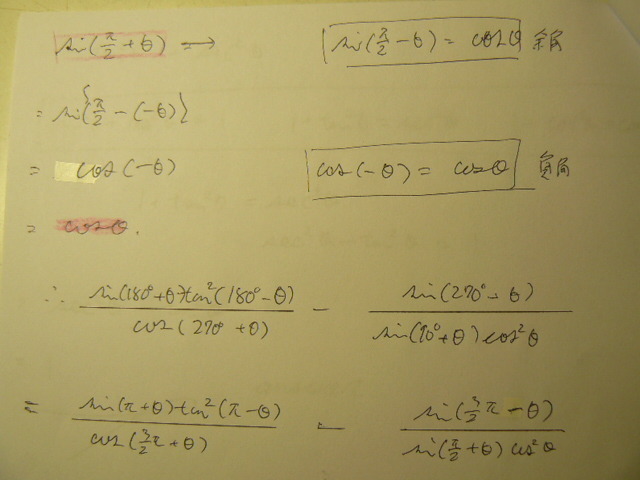 sin(π/2 + θ) → sin(π/2 - θ) = cosθ 余角
= sin{π/2 - (-θ)}
= cos(-θ) cos(-θ) = cosθ 負角
= cosθ.
∴ sin(180°+θ)tan²(180°-θ)/cos(270°+θ) - sin(270°-θ)/sin(90°+θ)cos²θ
= sin(π+θ)tan²(π-θ)/cos(3/2π+θ) - sin(3/2π-θ)/sin(π/2+θ)cos²θ